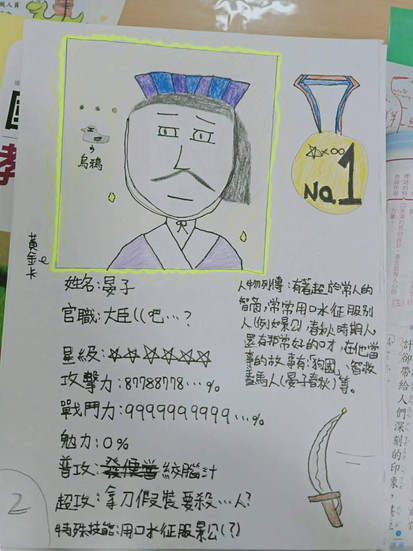 烏鴉
No.1
黃金卡
姓名:晏子
官職:大臣((吧…?
星級:☆☆☆☆☆☆
攻擊力:87788778…%
戰鬥力:9999999999…%
勉力:0%
普攻:絞腦汁
超攻:拿刀假裝要殺…人?
特殊技能:用口水征服景公(?)
人物列傳:有著超於常人的
智商,常常用口水征服別
人(例如景公)春秋時期人,
還有非常好的口才,在他當
事的故事有:「狗國」、智救
養馬人(晏子春秋)等。
2